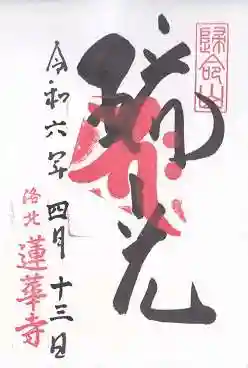 歸命山
花
令和六年 四月 十三日
洛北 蓮華寺